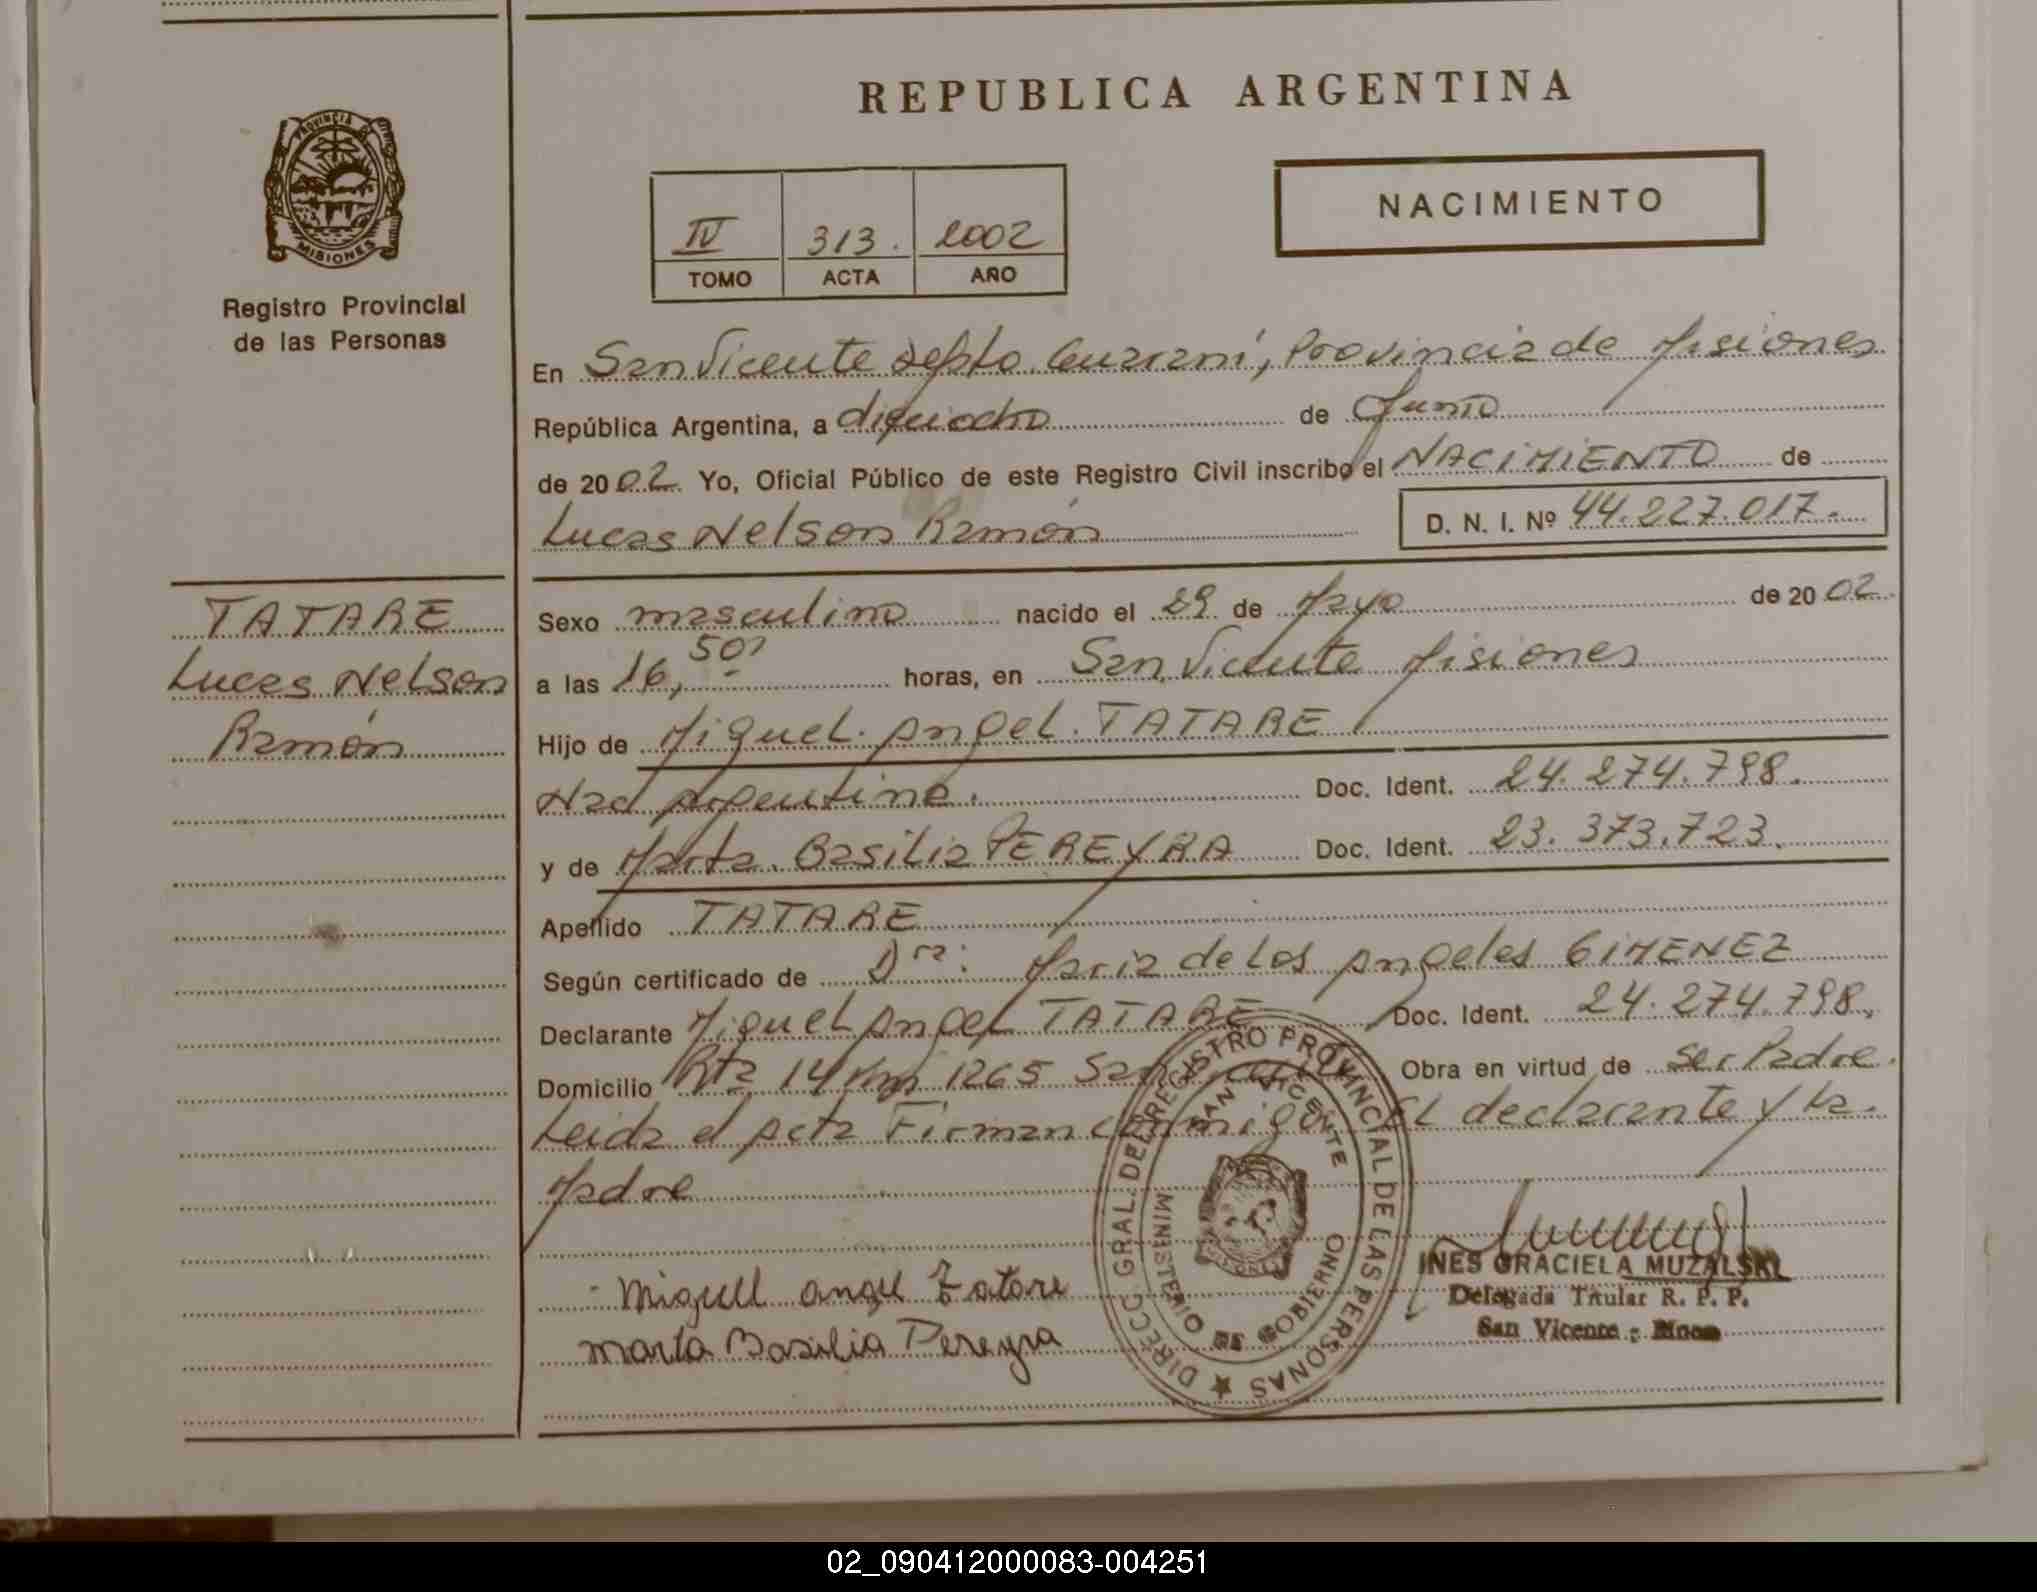 REPUBLICA ARGENTINA
PROVINCIA DE MISIONES
Registro Provincial
de las Personas
IV 313. 2002
TOMO ACTA AÑO
NACIMIENTO
En San Vicente Depto. Guaraní, Provincia de Misiones
República Argentina, a dieciocho de Junio
de 2002 Yo, Oficial Público de este Registro Civil inscribo el NACIMIENTO de
Lucas Nelson Ramón
D. N. I. Nº 44.227.017.
TATARE
Lucas Nelson
Ramón
Sexo masculino nacido el 29 de Mayo de 2002
a las 16,50' horas, en San Vicente Misiones
Hijo de Miguel Angel TATARE
Nac Argentino. Doc. Ident. 24.274.798.
y de Marta Basilia PEREYRA Doc. Ident. 23.373.723.
Apellido TATARE
Según certificado de Dra: Maria de Los Angeles GIMENEZ
Declarante Miguel Angel TATARE Doc. Ident. 24.274.798.
Domicilio Rta 14 Km 1265 San Vicente Obra en virtud de ser Padre.
Leida el Acta Firman conmigo El declarante y La
Madre
Miguel Angel Tatare
Marta Basilia Pereyra
DIRECC. GRAL. DEL REGISTRO PROVINCIAL DE LAS PERSONAS
SAN VICENTE
MINISTERIO DE GOBIERNO
INES GRACIELA MUZALSKI
Delegada Titular R. P. P.
San Vicente - Mnes
02_090412000083-004251